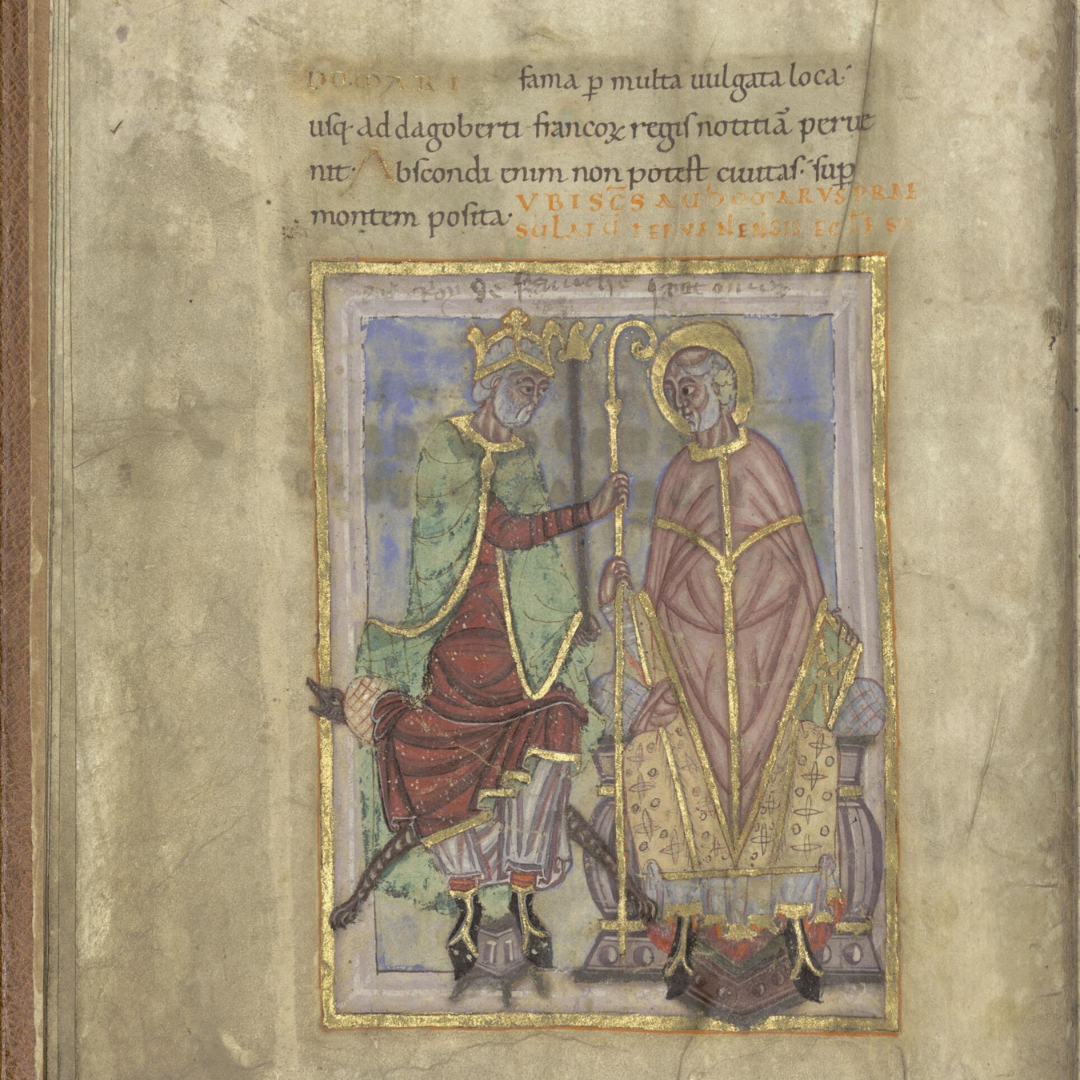 DOMARI fama p multa uulgata loca·
usq· ad dagoberti francoꝝ regis notitiā perue
nit· Abscondi enim non potest ciuitas· sup
montem posita·
UBI SC̄S AUDOMARUS PRAE
SULATŪ TERUANENSIS